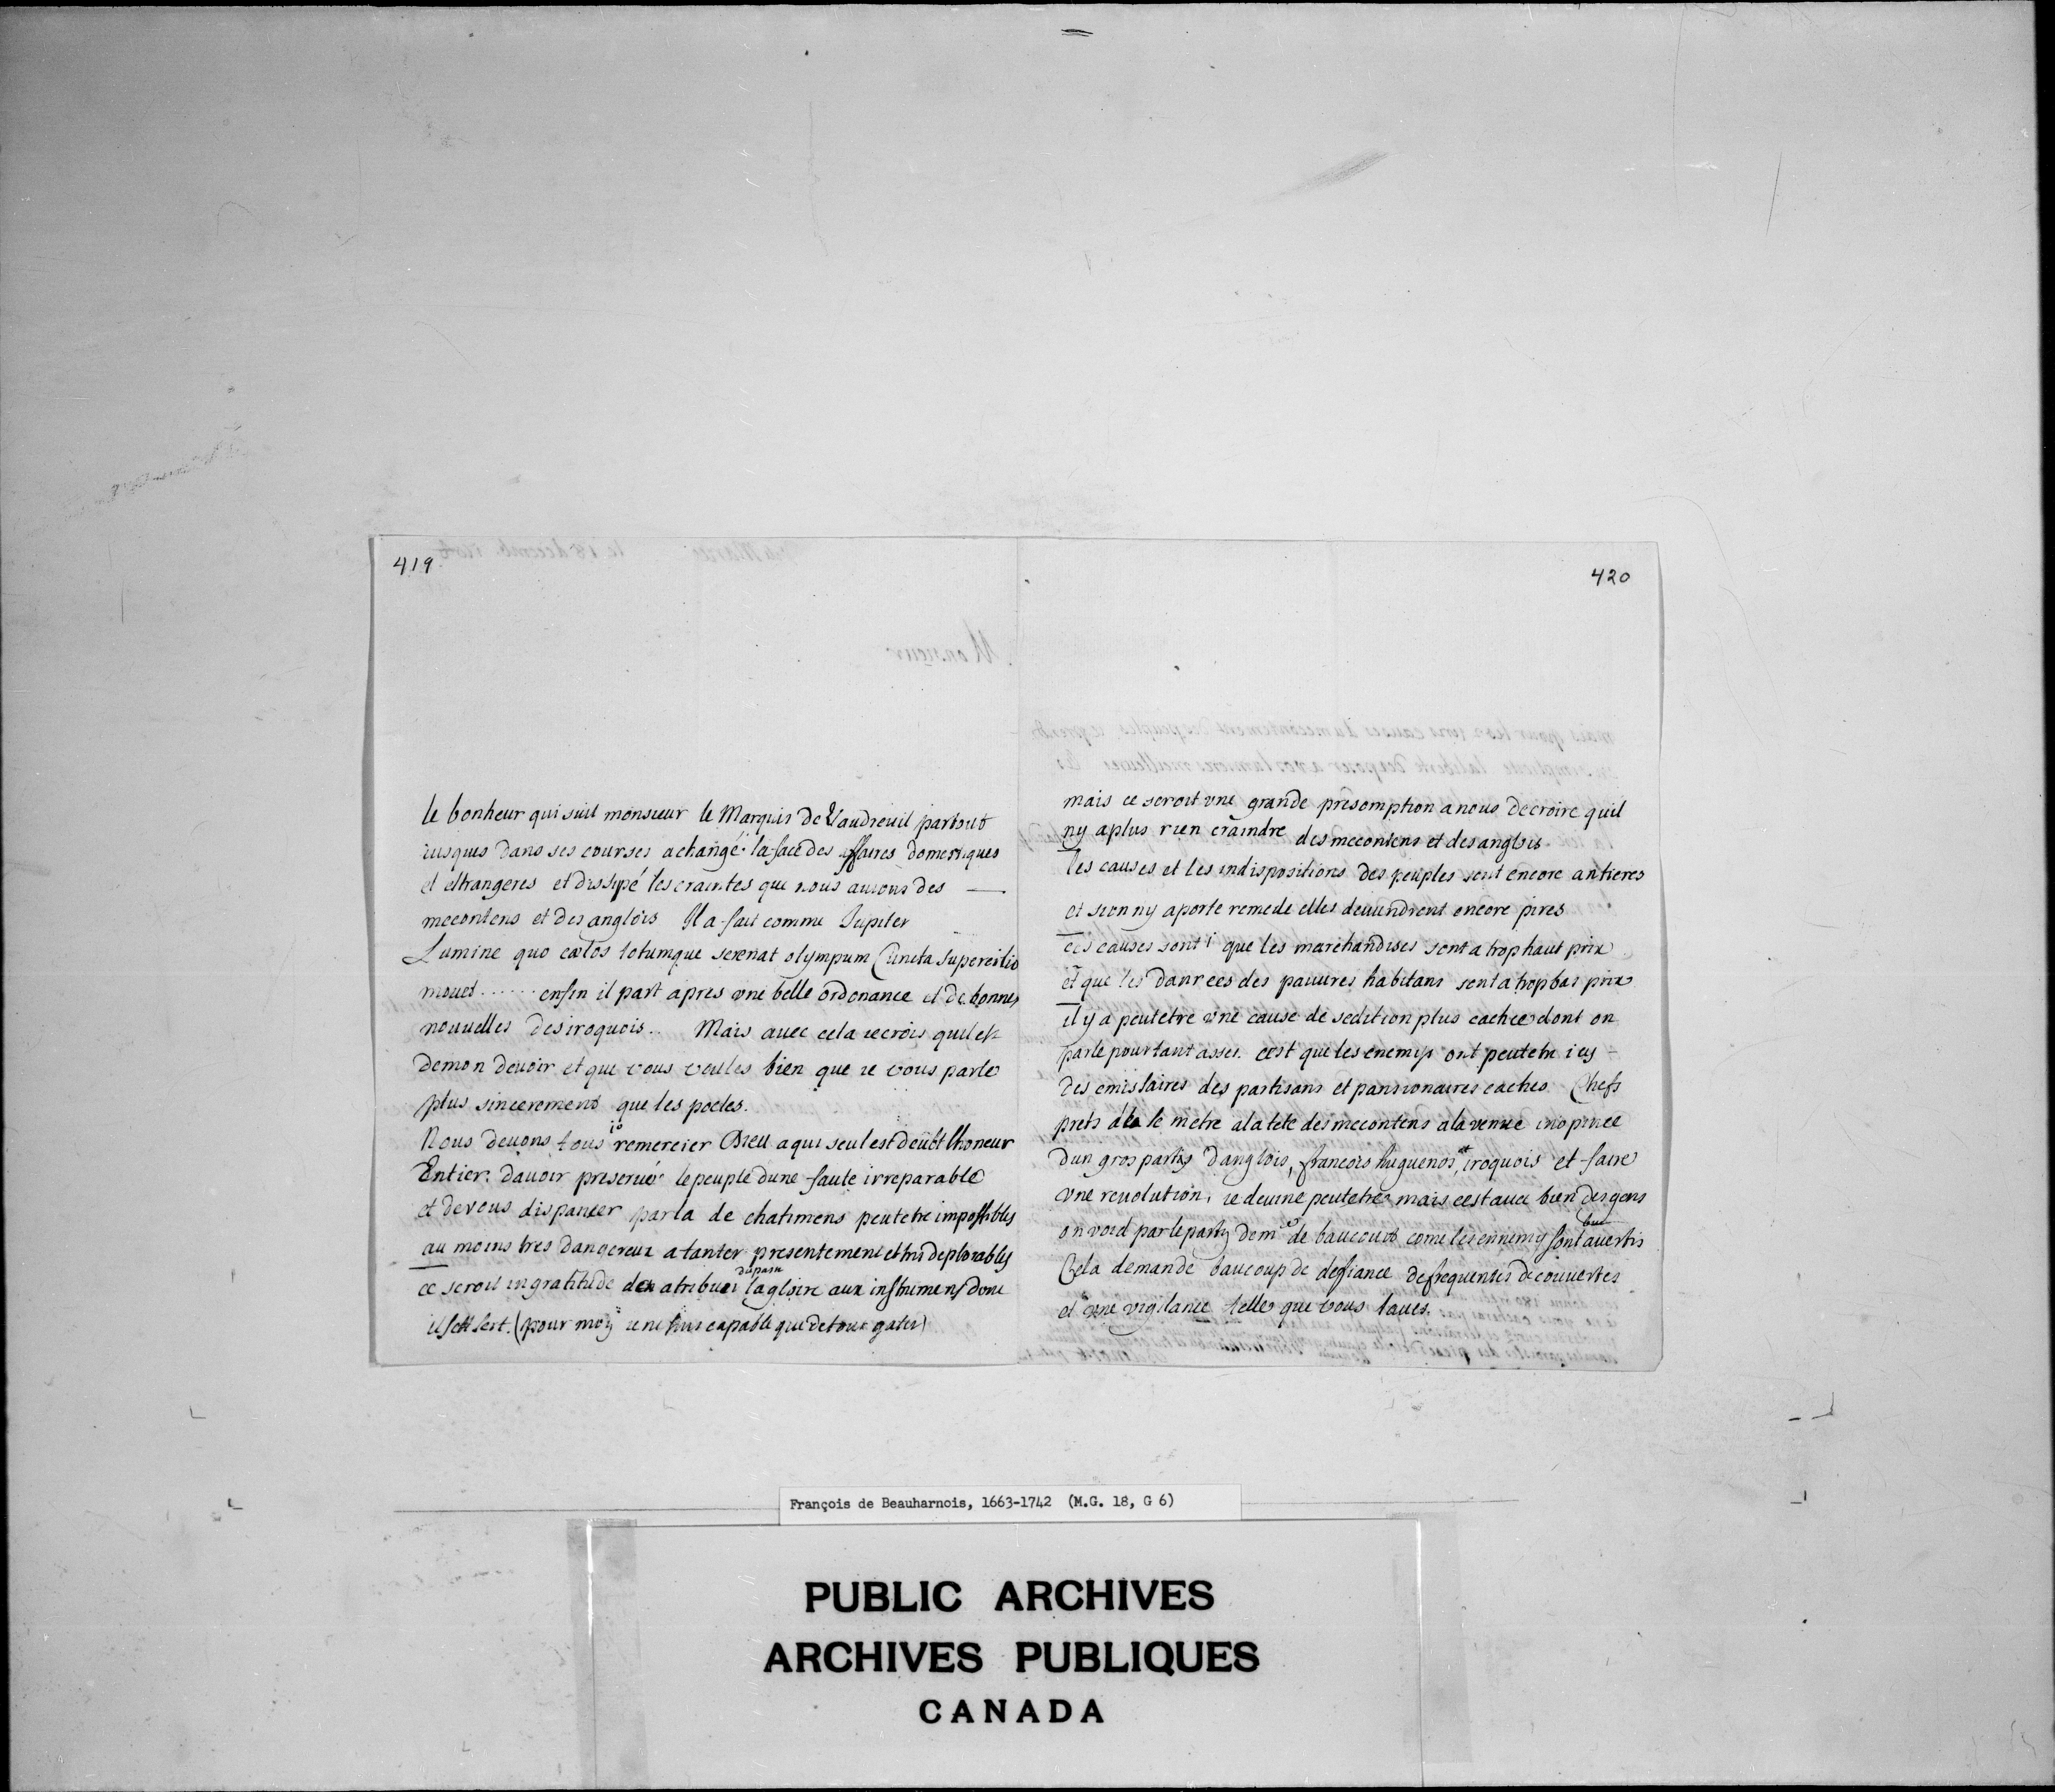 419
le bonheur qui suit monsieur le Marquis de Vaudreuil partout
iusques dans ses courses a changé la face des affaires domestiques
et etrangeres et dissipé les craintes que nous auions des
mecontens et des anglois Il a fait comme Jupiter
Lumine quo cœlos totumque serenat olympum Cuncta supercilio
mouet ...... enfin il part apres vne belle ordonance et de bonnes
nouuelles des iroquois. Mais auec cela ie crois quil est
de mon deuoir et que vous veules bien que ie vous parle
plus sincerement que les poetes.
Nous deuons tous io remercier Dieu a qui seul est deubt lhoneur
Entier dauoir preserué le peuple dune faute irreparable
et de vous dispancer par la de chatimens peutetre impossibles
au moins tres dangereux a tanter presentement et tres deplorables
ce seroit ingratitude den atribuer du passé la gloire aux instrumens dont
il sert. (pour moy ie ne suis capable que de tout gater)
420
mais ce seroit vne grande presomption a nous de croire quil
ny a plus rien craindre des mecontens et des anglois
les causes et les indispositions des peuples sont encore antieres
et sion ny aporte remede elles deuiendront encore pires
ces causes sont i que les marchandises sont a trop haut prix
et que les danrees des pauures habitans sont a trop bas prix
il y a peutetre vne cause de sedition plus cachee dont on
parle pourtant asses. cest que les enemys ont peutetre icy
des emissaires des partisans et pansionaires cachés Chefs
prets a se metre a la tete des mecontens a la venue inopinee
dun gros partis danglois, francois huguenos, et iroquois et faire
vne reuolution, ie deuine peutetre mais cest auec bien des gens
on void par le party de mr de baucourt come les ennemy sont auertis
Cela demande baucoup de defiance de frequentes decouuertes
et vne vigilance telle que vous laues.
François de Beauharnois, 1663-1742 (M.G. 18, G 6)
PUBLIC ARCHIVES
ARCHIVES PUBLIQUES
CANADA